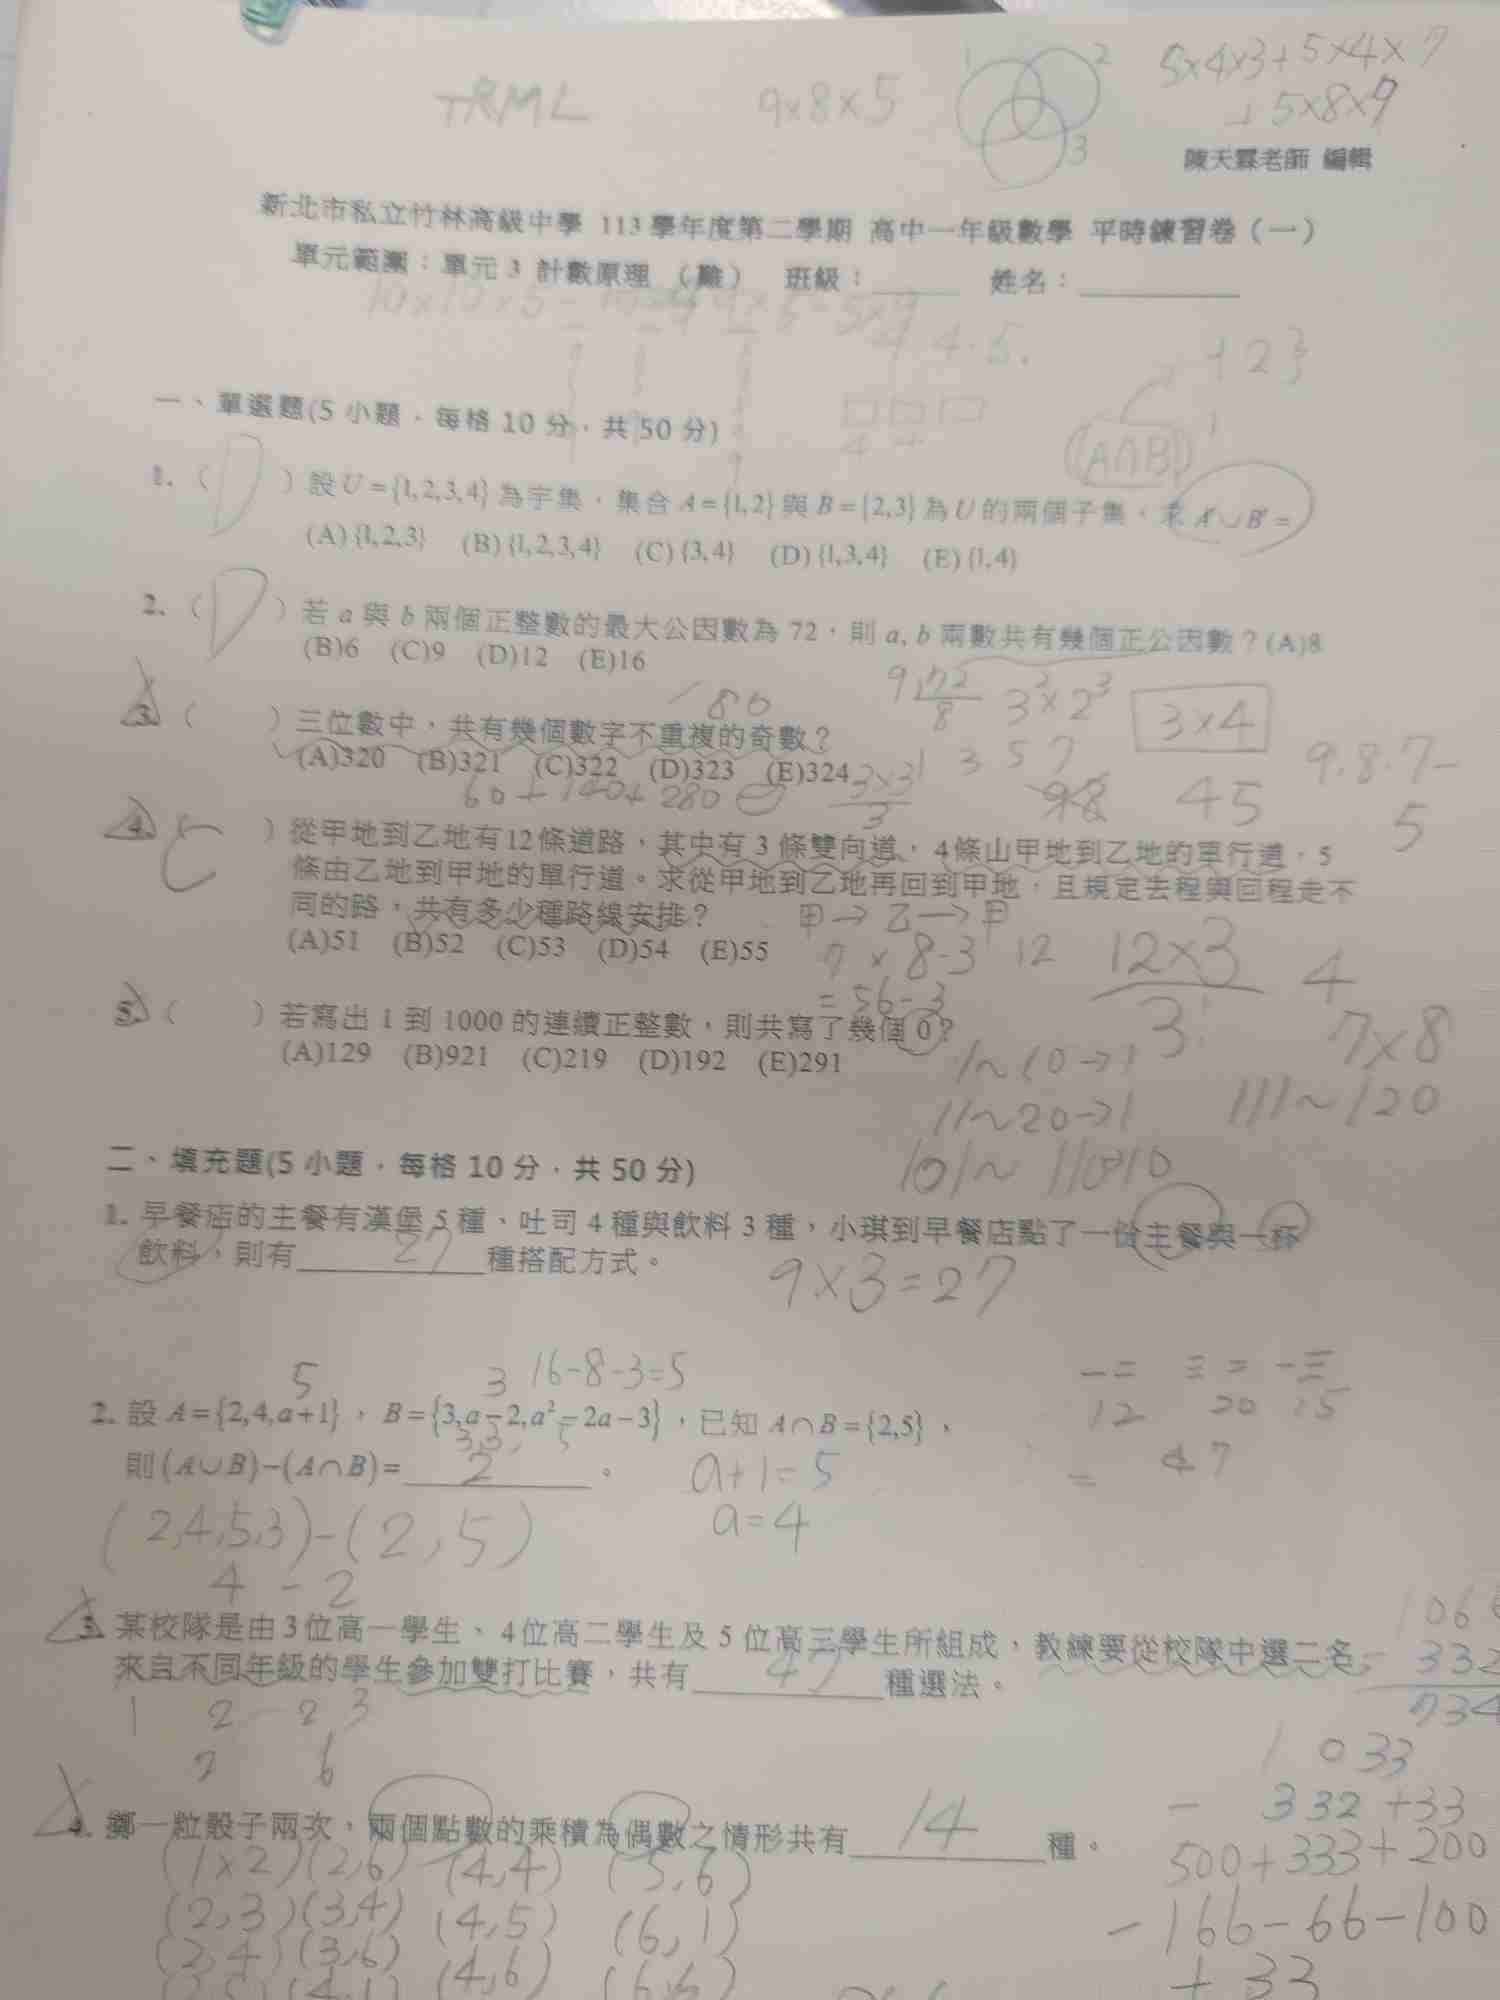 TRML
9×8×5
1
2
3
5×4×3+5×4×7
+5×8×9
陳天霖老師 編輯
新北市私立竹林高級中學 113 學年度第二學期 高中一年級數學 平時練習卷（一）
單元範圍：單元 3 計數原理 （難） 班級：______ 姓名：__________
4·4·5.
1 2 3
一、單選題(5 小題，每格 10 分，共 50 分)
(A∩B)'
1. （ D ）設 U={1,2,3,4} 為宇集，集合 A={1,2} 與 B={2,3} 為 U 的兩個子集，求 A'∪B'=
(A){1,2,3} (B){1,2,3,4} (C){3,4} (D){1,3,4} (E){1,4}
2. （ D ）若 a 與 b 兩個正整數的最大公因數為 72，則 a, b 兩數共有幾個正公因數？(A)8
(B)6 (C)9 (D)12 (E)16
9 72
8
3²×2³
3×4
80
3. （ ）三位數中，共有幾個數字不重複的奇數？
(A)320 (B)321 (C)322 (D)323 (E)324
1 3 5 7
9·8·7-
5
60+140+280
3×3
3
98
45
4. （ C ）從甲地到乙地有12條道路，其中有 3 條雙向道，4條由甲地到乙地的單行道，5
條由乙地到甲地的單行道。求從甲地到乙地再回到甲地，且規定去程與回程走不
同的路，共有多少種路線安排？
甲→乙→甲
(A)51 (B)52 (C)53 (D)54 (E)55
7×8-3
=56-3
12
12×3
3!
4
7×8
5. （ ）若寫出 1 到 1000 的連續正整數，則共寫了幾個 0？
(A)129 (B)921 (C)219 (D)192 (E)291
1~10→1
11~20→1
111~120
101~110→10
二、填充題(5 小題，每格 10 分，共 50 分)
1. 早餐店的主餐有漢堡 5 種、吐司 4 種與飲料 3 種，小琪到早餐店點了一份主餐與一杯
飲料，則有 27 種搭配方式。
9×3=27
5
3
16-8-3=5
一二 三二 一三
12 20 15
= 47
2. 設 A={2,4,a+1}，B={3,a−2,a²−2a−3}，已知 A∩B={2,5}，
則 (A∪B)−(A∩B)= 2 。
a+1=5
a=4
(2,4,5,3)-(2,5)
4 - 2
3. 某校隊是由 3 位高一學生、4位高二學生及 5 位高三學生所組成，教練要從校隊中選二名
來自不同年級的學生參加雙打比賽，共有 47 種選法。
1 2 2 3
7 6
332
734
1033
- 332 +33
4. 擲一粒骰子兩次，兩個點數的乘積為偶數之情形共有 14 種。
500+333+200
-166-66-100
+33
(1×2)(2,6) (4,4) (5,6)
(2,3)(3,4) (4,5) (6,1)
(2,4)(3,6) (4,6) (6,6)